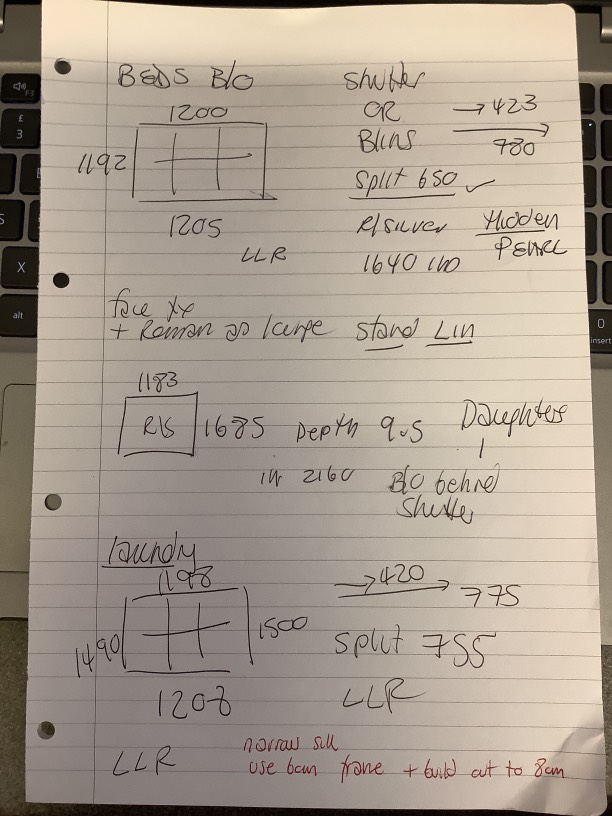 BEDS B/O
1200
1192
1205
LLR
Shutter
OR
Blins
→ 423
780
Split 650 ✓
R/Silver Hidden
PEARL
1640
face
+ Roman as large Stand Lin
1183
R/S 1685 Depth 9.5 Daughters
2160 B/O behind
Shutter
Laundry
1198
1490 1500
1208
→ 420
775
Split 755
LLR
LLR
narrow sill
use 6cm frame + build out to 8cm
F3
£
3
X
alt
0
insert